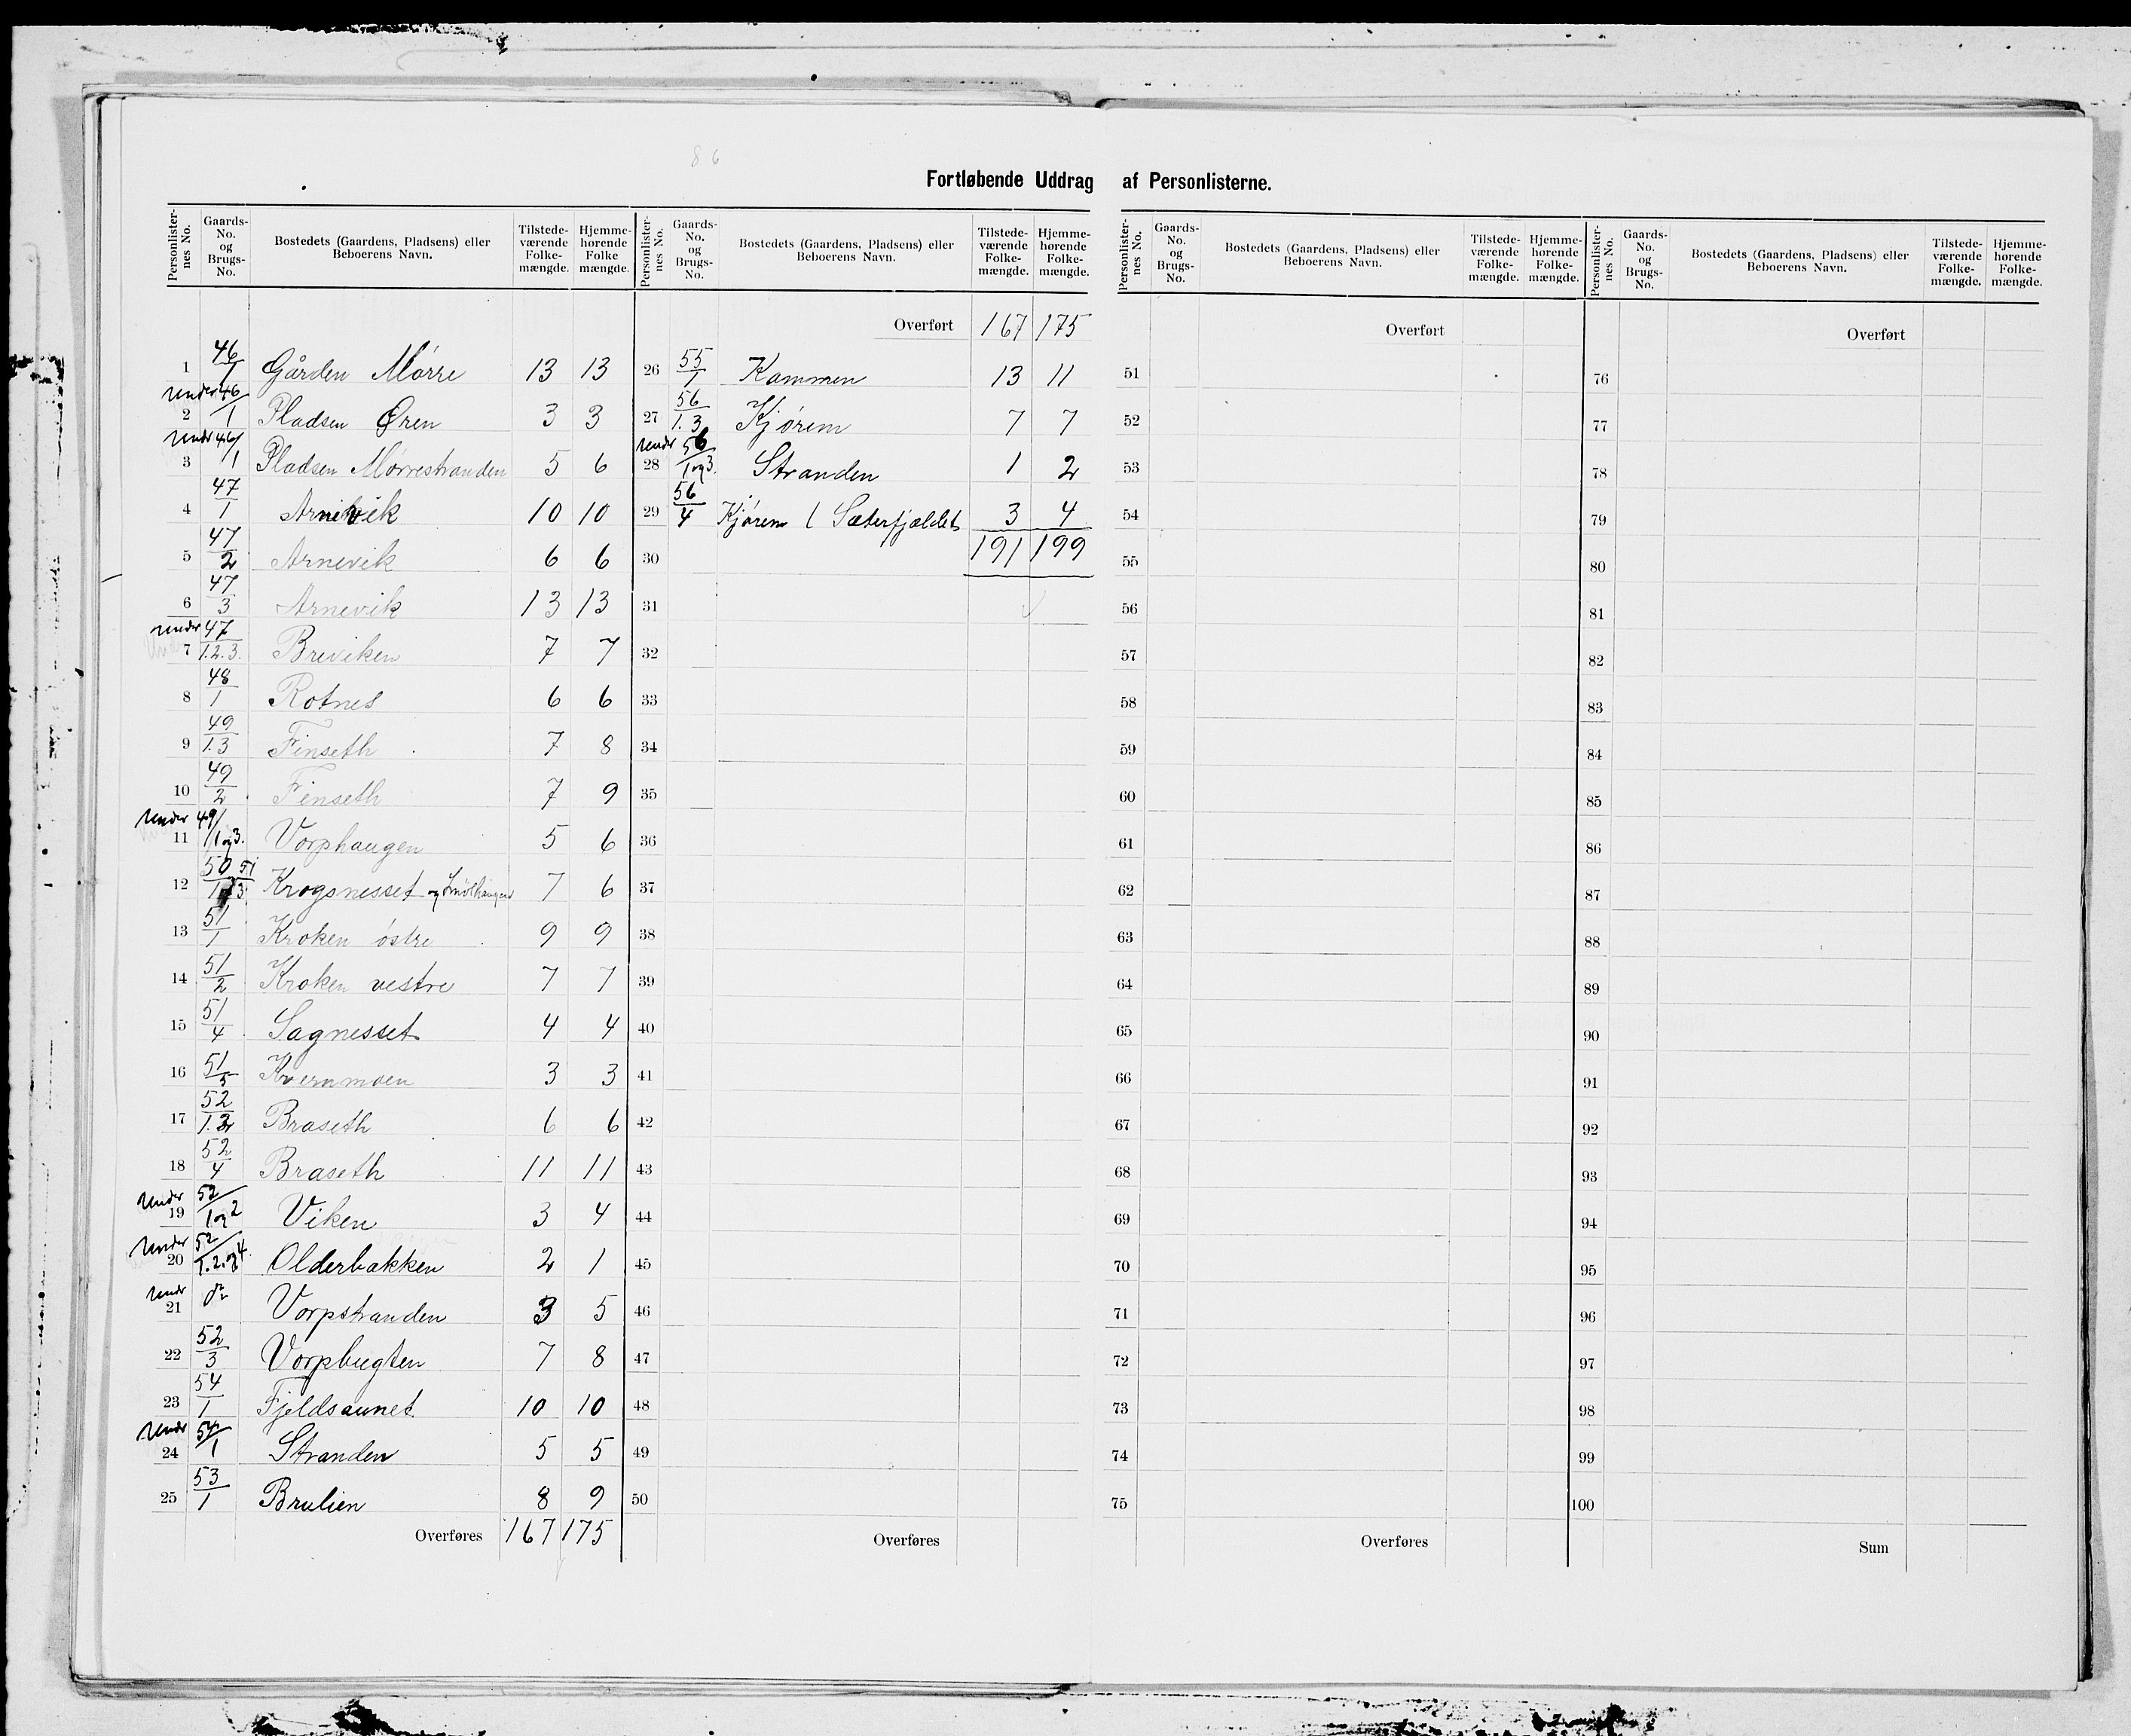 86
Fortløbende Uddrag af Personlisterne.
Personlister-nes No. Gaards-No. og Brugs-No. Bostedets (Gaardens, Pladsens) eller Beboerens Navn. Tilstede-værende Folke-mængde. Hjemme-hørende Folke mængde.
1 46/1 Gården Mørre 13 13
2 under 46/1 Pladsen Øren 3 3
3 under 46/1 Pladsen Mørrestranden 5 6
4 47/1 Arnevik 10 10
5 47/2 Arnevik 6 6
6 47/3 Arnevik 13 13
7 under 47/1.2.3. Breviken 7 7
8 48/1 Rotnes 6 6
9 49/1.3 Finseth 7 8
10 49/2 Finseth 7 9
11 under 49/1 og 3. Vorphaugen 5 6
12 50/1 51/3 Krogsnesset og 7 6
13 51/1 Kroken østre 9 9
14 51/2 Kroken vestre 7 7
15 51/4 Sagnesset 4 4
16 51/5 Kvernmoen 3 3
17 52/1.2 Braseth 6 6
18 52/4 Braseth 11 11
19 under 52/1 og 2 Viken 3 4
20 under 52/1.2. og 4. Olderbakken 2 1
21 under do Vorpstranden 3 5
22 52/3 Vorpbugten 7 8
23 54/1 Fjeldsaunet 10 10
24 under 54/1 Stranden 5 5
25 53/1 Brulien 8 9
Overføres 167 175
Personlister-nes No. Gaards-No. og Brugs-No. Bostedets (Gaardens, Pladsens) eller Beboerens Navn. Tilstede-værende Folke-mængde. Hjemme-hørende Folke-mængde.
Overført 167 175
26 55/1 Kammen 13 11
27 56/1.3 Kjørem 7 7
28 under 56/1 og 3. Stranden 1 2
29 56/4 Kjørem ( Sæterfjældet 3 4
30 191 199
31
32
33
34
35
36
37
38
39
40
41
42
43
44
45
46
47
48
49
50
Overføres
Personlister-nes No. Gaards-No. og Brugs-No. Bostedets (Gaardens, Pladsens) eller Beboerens Navn. Tilstede-værende Folke-mængde. Hjemme-hørende Folke-mængde.
Overført
51
52
53
54
55
56
57
58
59
60
61
62
63
64
65
66
67
68
69
70
71
72
73
74
75
Overføres
Personlister-nes No. Gaards-No. og Brugs-No. Bostedets (Gaardens, Pladsens) eller Beboerens Navn. Tilstede-værende Folke-mængde. Hjemme-hørende Folke-mængde.
Overført
76
77
78
79
80
81
82
83
84
85
86
87
88
89
90
91
92
93
94
95
96
97
98
99
100
Sum